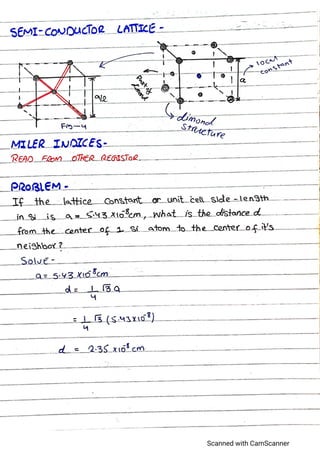 SEMI-CONDUCTOR LATTICE -
a/2
a
locat constant
Fig-4
dimond Structure
MILER INDICES-
READ FROM OTHER REGISTOR.
PROBLEM -
If the lattice constant or unit cell side-length
in Si is a = 5.43 x10⁻⁸cm, what is the distance d
from the center of 1 Si atom to the center of it's
neighbor?
Solve -
a = 5.43 x10⁻⁸cm
d = 1/4 √3 a
= 1/4 √3 (5.43x10⁻⁸)
d = 2.35 x10⁻⁸ cm
Scanned with CamScanner